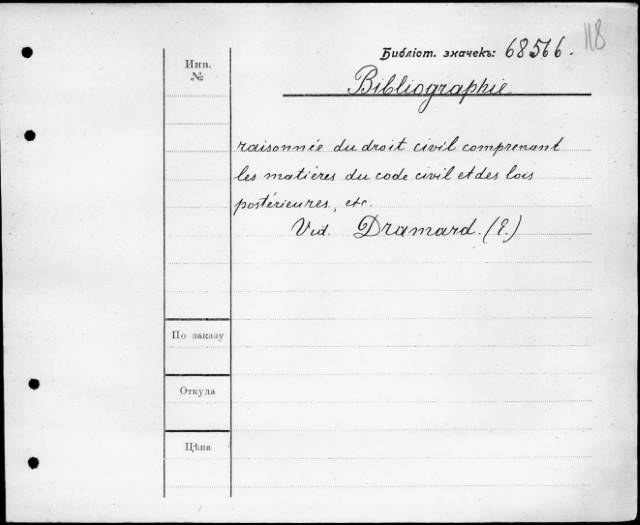 118
Библіот. значекъ: 68566.
Инв.
№
Bibliographie
raisonnée du droit civil comprenant
les matières du code civil et des lois
postérieures, etc.
Vid. Dramard. (E.)
По заказу
Откуда
Цѣна